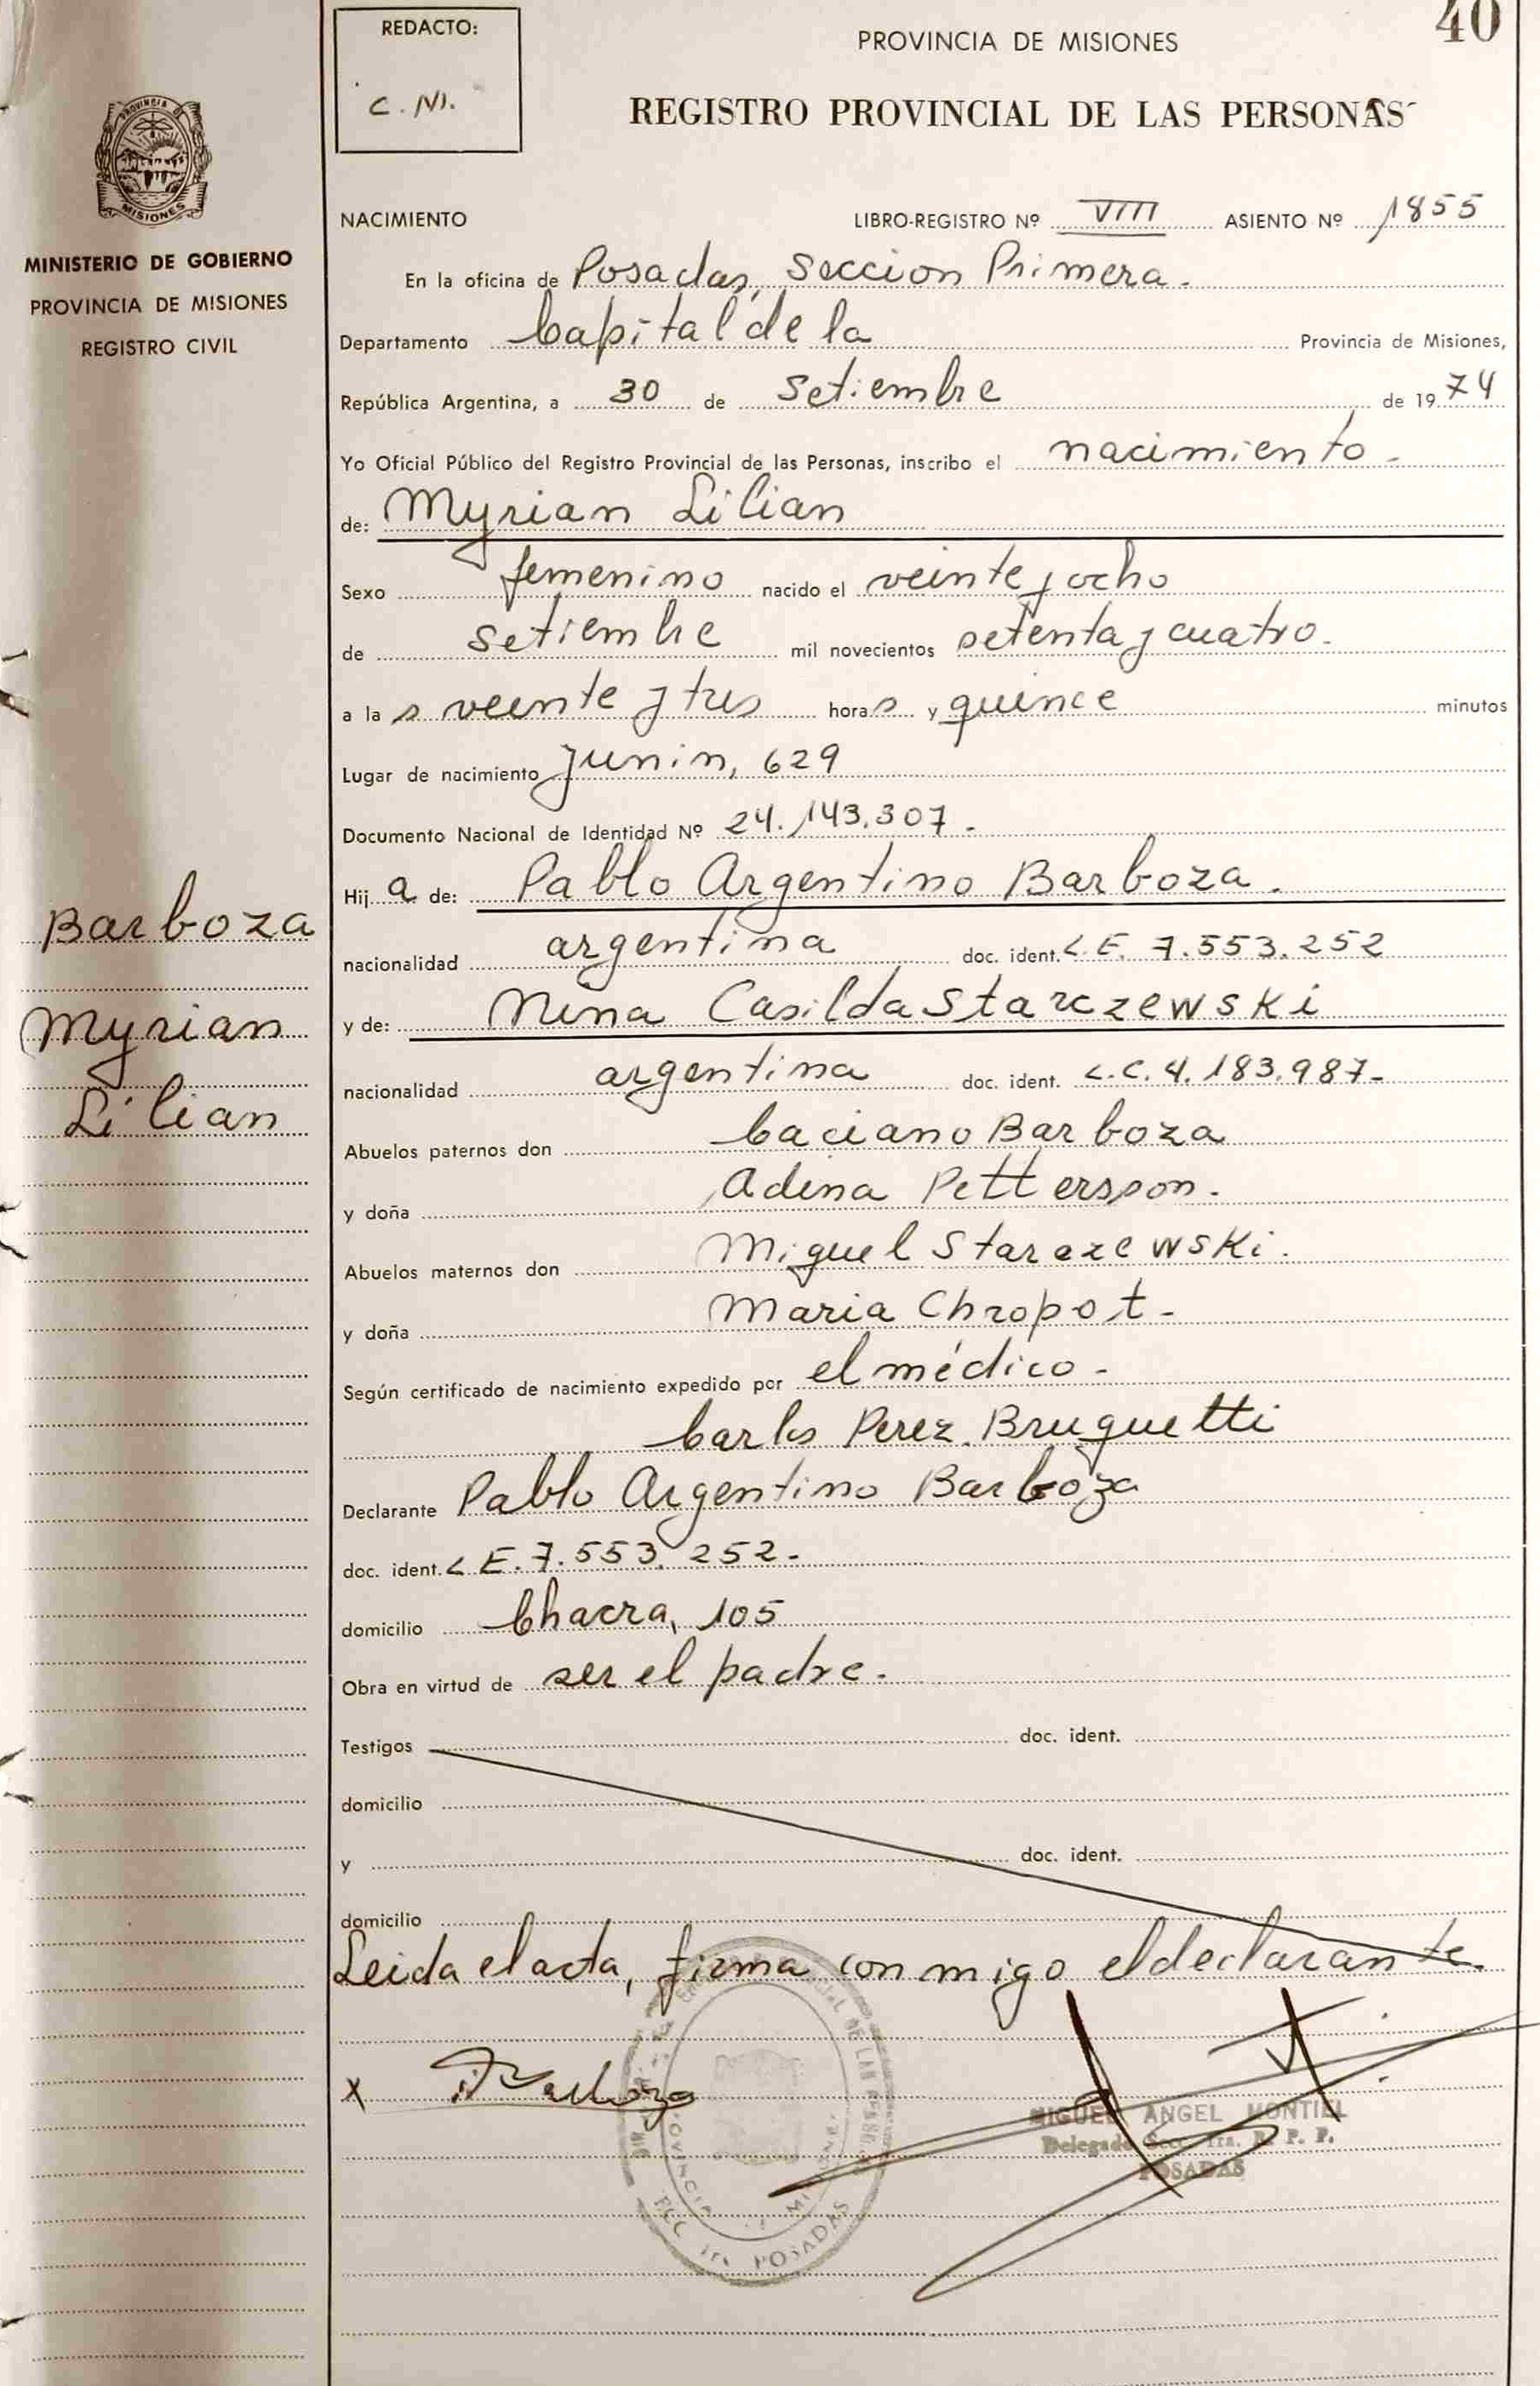 40
REDACTO:
C. N.
PROVINCIA DE MISIONES
REGISTRO PROVINCIAL DE LAS PERSONAS
PROVINCIA DE
MISIONES
MINISTERIO DE GOBIERNO
PROVINCIA DE MISIONES
REGISTRO CIVIL
NACIMIENTO LIBRO-REGISTRO Nº VIII ASIENTO Nº 1855
En la oficina de Posadas, Seccion Primera.
Departamento Capital de la Provincia de Misiones,
República Argentina, a 30 de Setiembre de 1974
Yo Oficial Público del Registro Provincial de las Personas, inscribo el nacimiento.
de: Myrian Lilian
Sexo femenino nacido el veinte y ocho
de setiembre mil novecientos setenta y cuatro.
a la s veinte y tres horas y quince minutos
Lugar de nacimiento Junin, 629
Documento Nacional de Identidad Nº 24.143.307.
Hija de: Pablo Argentino Barboza.
nacionalidad argentina doc. ident. L.E. 7.553.252
y de: Nena Casilda Starczewski
nacionalidad argentina doc. ident. L.C. 4.183.987-
Abuelos paternos don Caciano Barboza
y doña Adina Pettersson.
Abuelos maternos don Miguel Starczewski.
y doña Maria Chropot-
Según certificado de nacimiento expedido por el médico-
Carlos Perez Bruquetti
Declarante Pablo Argentino Barboza
doc. ident. L E. 7.553.252-
domicilio Chacra, 105
Obra en virtud de ser el padre.
Testigos doc. ident.
domicilio
y doc. ident.
domicilio
Leida el acta, firma conmigo el declarante.
Barboza
Myrian
Lilian
X
MIGUEL ANGEL MONTIEL
Delegado Secc. 1ra. R. P. P.
POSADAS
PROVINCIA DE MISIONES
SECC 1ra POSADAS